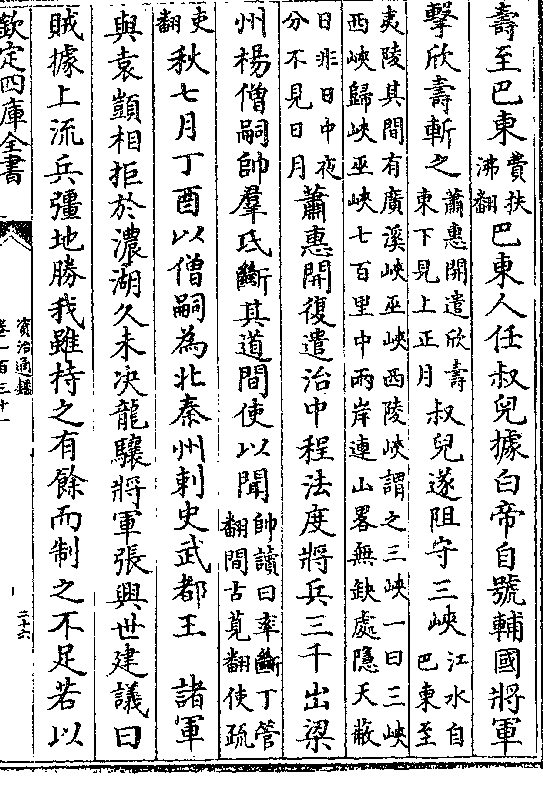 壽至巴東費扶沸翻巴東人任叔兒據白帝自號輔國將軍
擊欣壽斬之蕭惠開遣欣壽東下見上正月叔兒遂阻守三峽江水自巴東至
夷陵其間有廣溪峽巫峽西陵峽謂之三峽一曰三峽西峽歸峽巫峽七百里中兩岸連山畧無缺處隱天蔽
日非日中夜分不見日月蕭惠開復遣治中程法度將兵三千出梁
州楊僧嗣帥羣氐斷其道間使以聞帥讀曰率斷丁管翻間古莧翻使疏
吏翻秋七月丁酉以僧嗣為北秦州刺史武都王 諸軍
與袁顗相拒於濃湖久未決龍驤將軍張興世建議曰
賊據上流兵彊地勝我雖持之有餘而制之不足若以
欽定四庫全書
資治通鑑
卷一百三十一
二十六